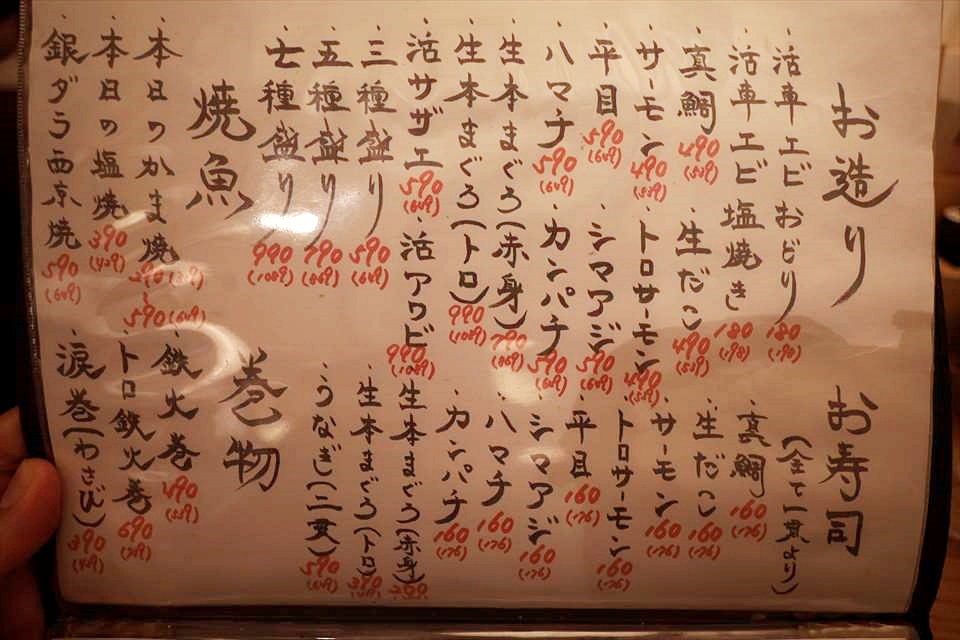 お造り
・活車エビおどり 180 (198)
・活車エビ塩焼き 180 (198)
・真鯛 490 (539)
・生だこ 490 (539)
・サーモン 490 (539)
・トロサーモン 490 (539)
・平目 590 (649)
・シマアジ 590 (649)
・ハマチ 590 (649)
・カンパチ 590 (649)
・生本まぐろ(赤身) 790 (869)
・生本まぐろ(トロ) 990 (1089)
・活サザエ 590 (649)
活アワビ 990 (1089)
・三種盛り 590 (649)
・五種盛り 790 (869)
・七種盛り 990 (1089)
焼魚
・本日のかま焼 390 ~ 590 (649)
・本日の塩焼 390 (429)
・銀ダラ西京焼 590 (649)
お寿司
(全て一貫より)
・真鯛 160 (176)
・生だこ 160 (176)
・サーモン 160 (176)
・トロサーモン 160 (176)
・平目 160 (176)
・シマアジ 160 (176)
・ハマチ 160 (176)
・カンパチ 160 (176)
・生本まぐろ(赤身)
・生本まぐろ(トロ) 390
・うなぎ(二貫) 590 (649)
巻物
・鉄火巻 490 (539)
・トロ鉄火巻 690 (759)
・涙巻(わさび) 390 (429)